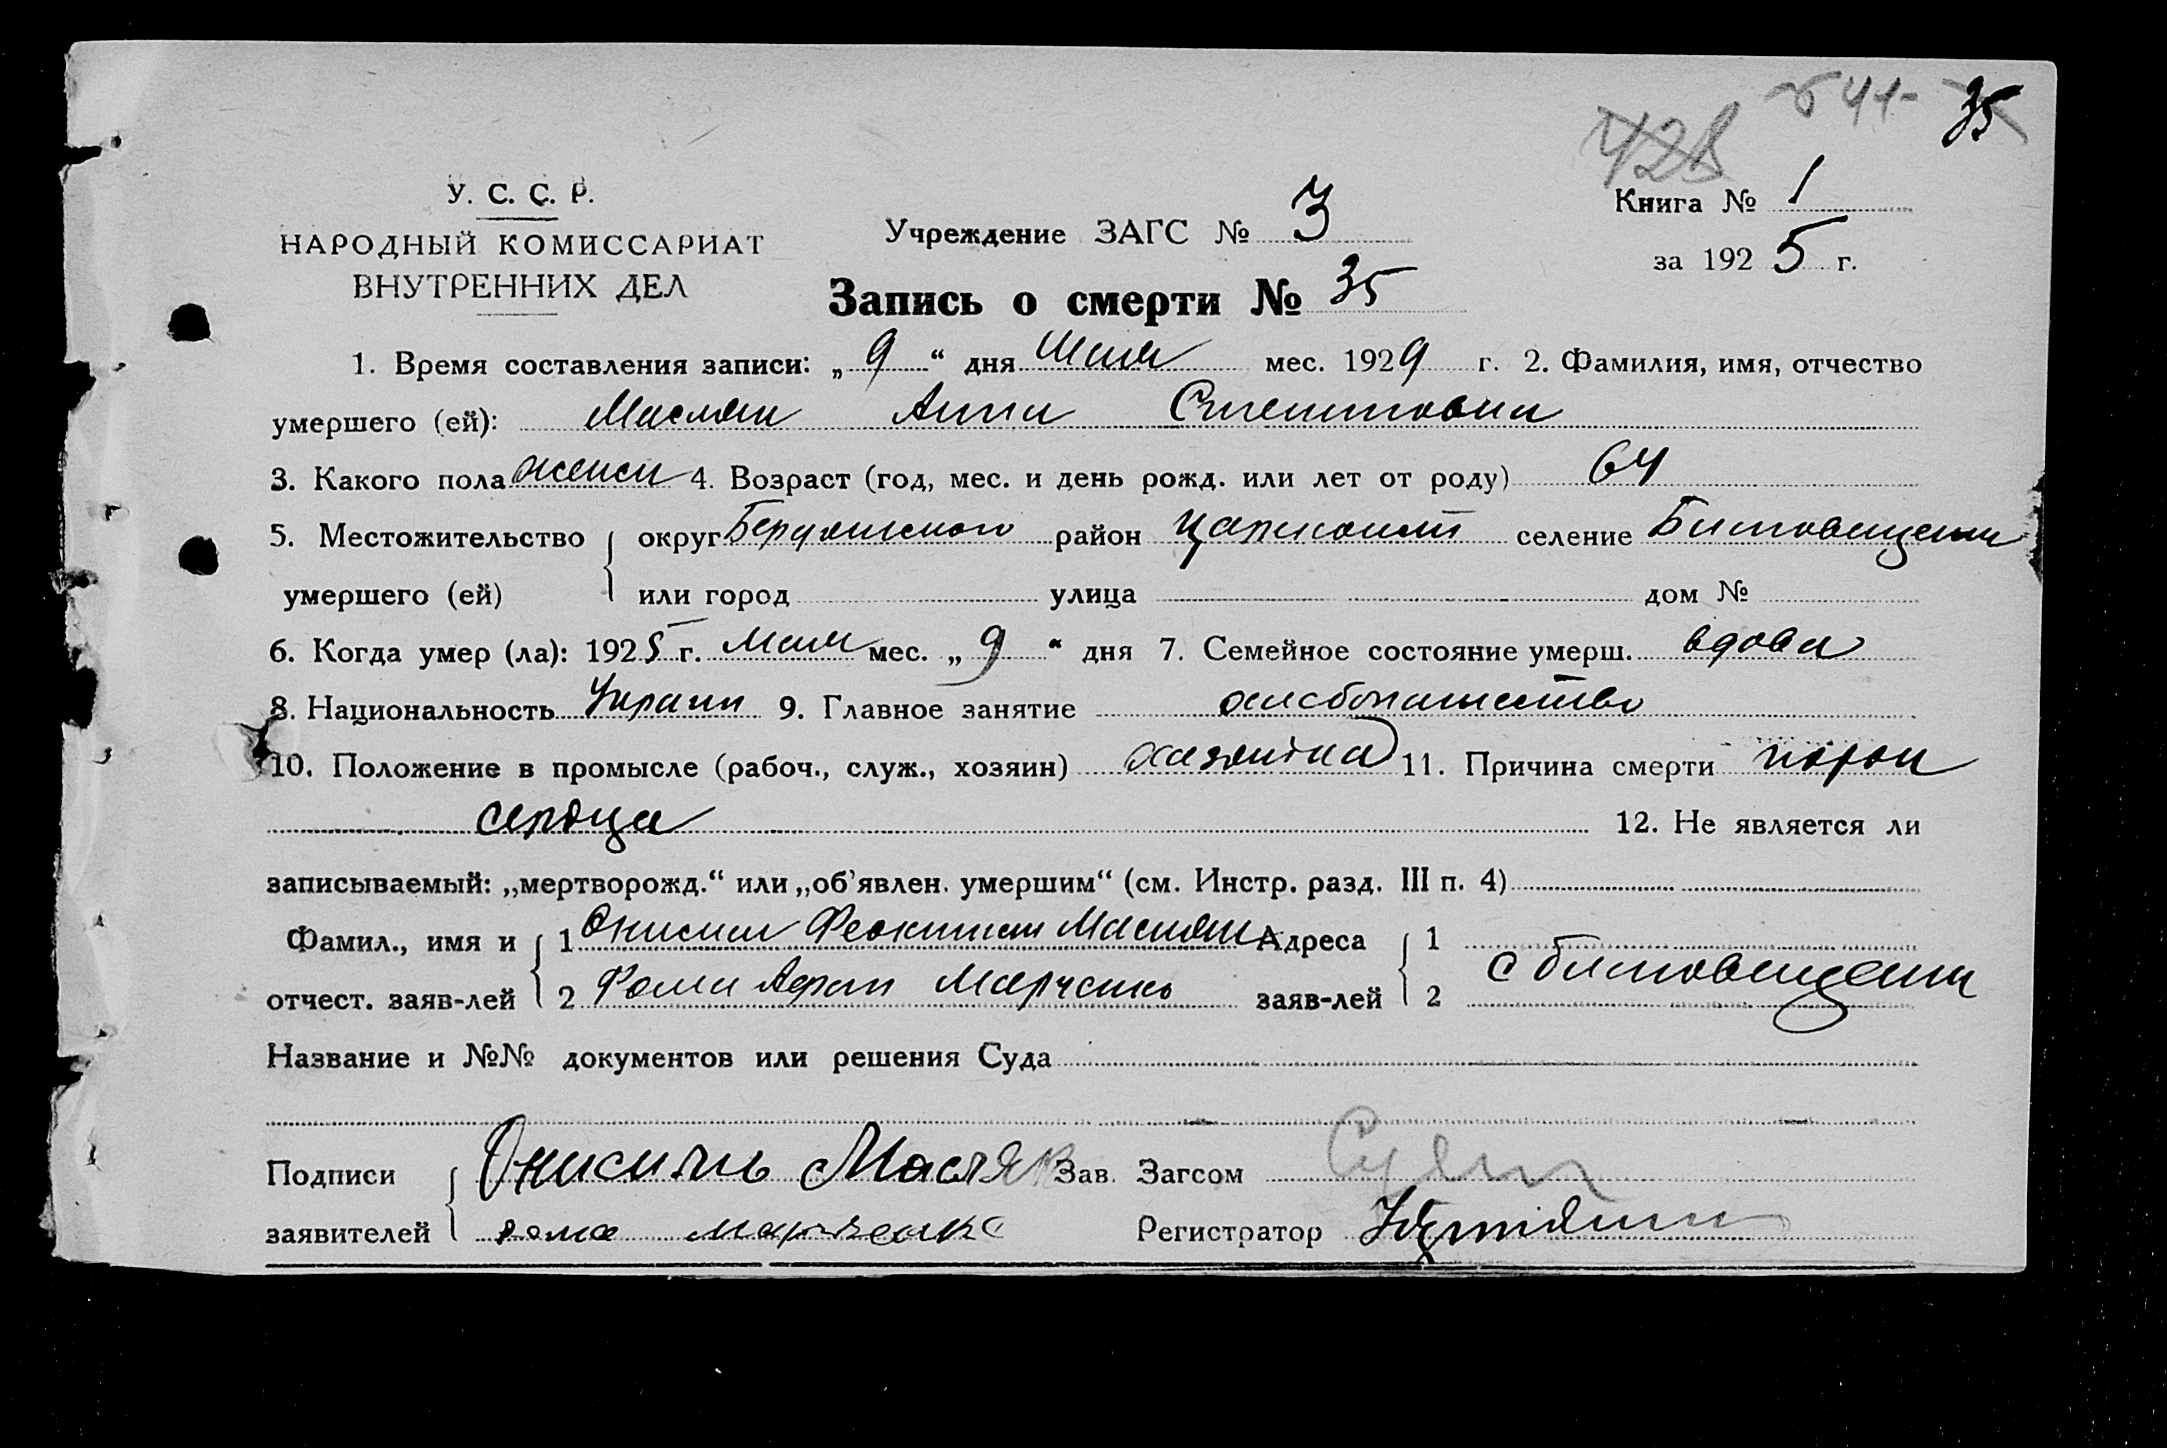 544- 35
428
У. С. С. Р.
НАРОДНЫЙ КОМИССАРИАТ
ВНУТРЕННИХ ДЕЛ
Учреждение ЗАГС № 3
Книга № 1
за 1925 г.
Запись о смерти № 35
1. Время составления записи: „ 9 “ дня Мая мес. 1929 г. 2. Фамилия, имя, отчество
умершего (ей): Масляк Анна Степановна
3. Какого пола женск 4. Возраст (год, мес. и день рожд. или лет от роду) 64
5. Местожительство округ Бердянского район селение
умершего (ей) или город улица дом №
6. Когда умер (ла): 1925 г. Мая мес. „ 9 “ дня 7. Семейное состояние умерш. вдова
8. Национальность Украин 9. Главное занятие хлебопашество
10. Положение в промысле (рабоч., служ., хозяин) хазяйка 11. Причина смерти порок
сердца 12. Не является ли
записываемый: „мертворожд.“ или „об’явлен. умершим“ (см. Инстр. разд. III п. 4)
Фамил., имя и 1 Онисим Масляк Адреса 1
отчест. заяв-лей 2 Фома Марченко заяв-лей 2 с
Название и №№ документов или решения Суда
Подписи Онисимь Масляк Зав. Загсом
заявителей Фома Марченко Регистратор